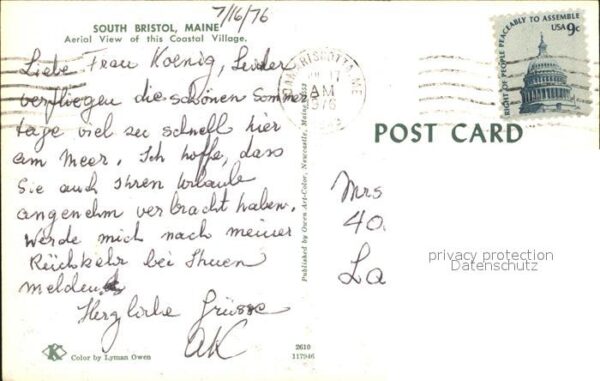 7/16/76
SOUTH BRISTOL, MAINE
Aerial View of this Coastal Village.
Liebe Frau Koenig, Leider
verfliegen die schönen Sommer
tage viel zu schnell hier
am Meer. Ich hoffe, dass
Sie auch Ihren Urlaub
angenehm verbracht haben.
Werde mich nach meiner
Rückkehr bei Ihnen
melden.
Herzliche Grüsse
AK
K
Color by Lyman Owen
2610
117946
Published by Owen Art-Color, Newcastle, Maine 04553
DAMARISCOTTA, ME
17
AM
1976
RIGHT OF PEOPLE PEACEABLY TO ASSEMBLE
USA 9c
POST CARD
Mrs
40
La
privacy protection
Datenschutz